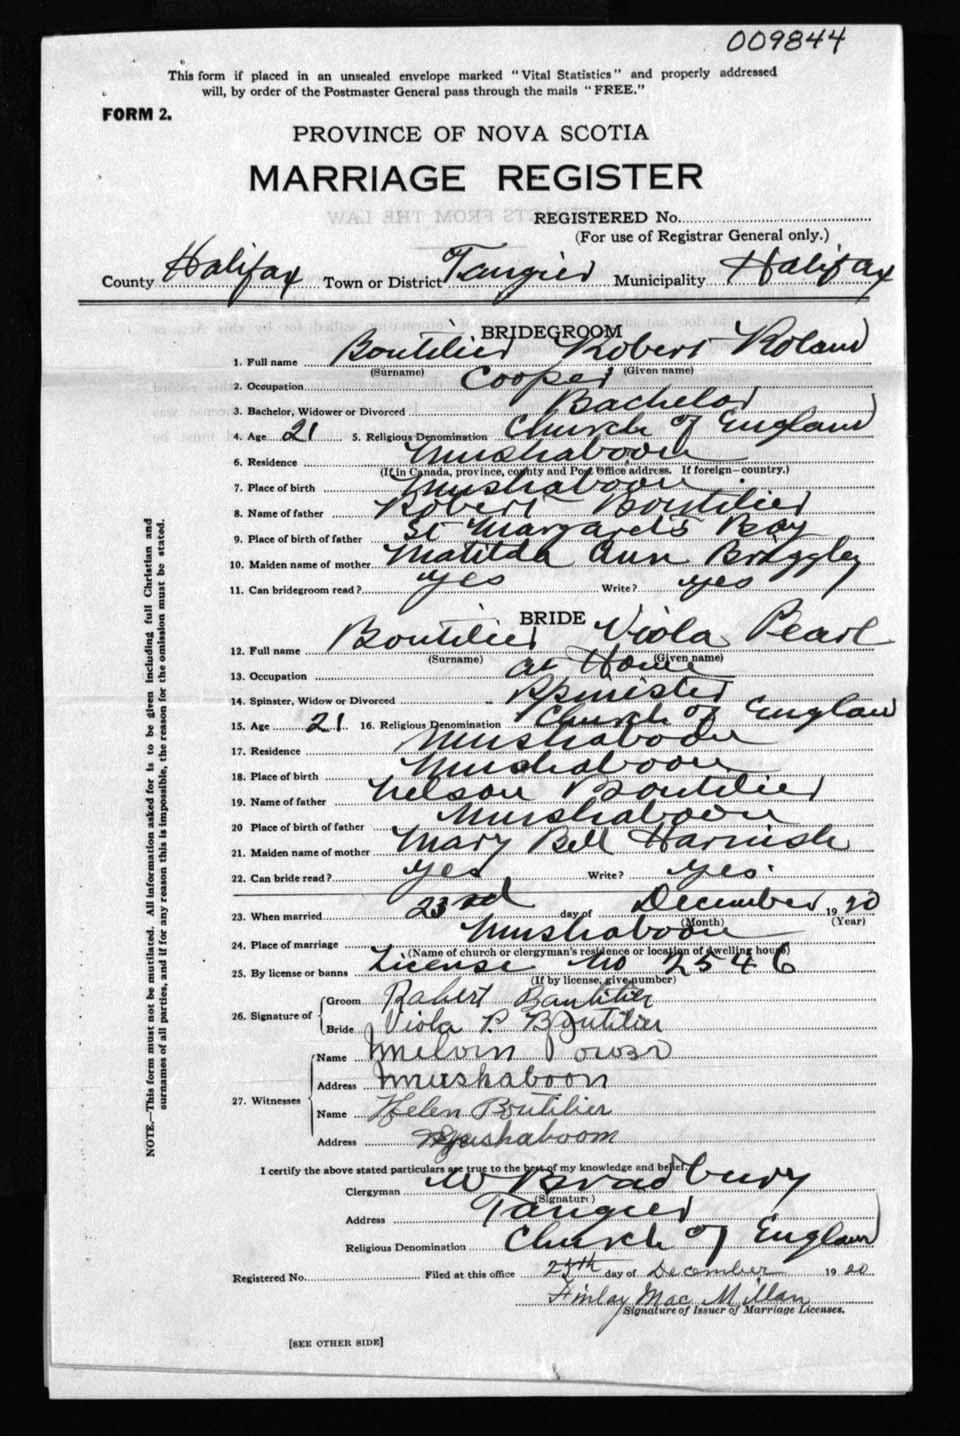 009844
This form if placed in an unsealed envelope marked "Vital Statistics" and properly addressed
will, by order of the Postmaster General pass through the mails "FREE."
FORM 2.
PROVINCE OF NOVA SCOTIA
MARRIAGE REGISTER
REGISTERED No.
(For use of Registrar General only.)
County Halifax Town or District Tangier Municipality Halifax
BRIDEGROOM
1. Full name Boutilier Robert Roland
(Surname) (Given name)
2. Occupation Cooper
3. Bachelor, Widower or Divorced Bachelor
4. Age 21 5. Religious Denomination Church of England
6. Residence Mushaboon
(If in Canada, province, county and Post Office address. If foreign—country.)
7. Place of birth Mushaboon
8. Name of father Robert Boutilier
9. Place of birth of father St Margaret's Bay
10. Maiden name of mother Matilda Ann Briggley
11. Can bridegroom read? yes Write? yes
BRIDE
12. Full name Boutilier Viola Pearl
(Surname) (Given name)
13. Occupation at Home
14. Spinster, Widow or Divorced Spinister
15. Age 21 16. Religious Denomination Church of England
17. Residence Mushaboon
18. Place of birth Mushaboon
19. Name of father Nelson Boutilier
20 Place of birth of father Mushaboon
21. Maiden name of mother Mary Bell Harnish
22. Can bride read? yes Write? yes.
23. When married 23rd day of December 1920
(Month) (Year)
24. Place of marriage Mushaboon
(Name of church or clergyman's residence or location of dwelling house)
25. By license or banns License No 2546
(If by license, give number)
26. Signature of
Groom Robert Boutilier
Bride Viola P. Boutilier
27. Witnesses
Name Melvin Power
Address Mushaboon
Name Helen Boutilier
Address Mushaboom
I certify the above stated particulars are true to the best of my knowledge and belief.
Clergyman W Bradbury
(Signature)
Address Tangier
Religious Denomination Church of England
Registered No. Filed at this office 25th day of December 1920
Finlay Mac Millan
Signature of Issuer of Marriage Licenses.
[SEE OTHER SIDE]
NOTE.—This form must not be mutilated. All information asked for is to be given including full Christian and
surnames of all parties, and if for any reason this is impossible, the reason for the omission must be stated.